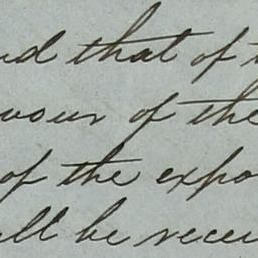 nd that of t
vour of the
of the expo
ll be recei